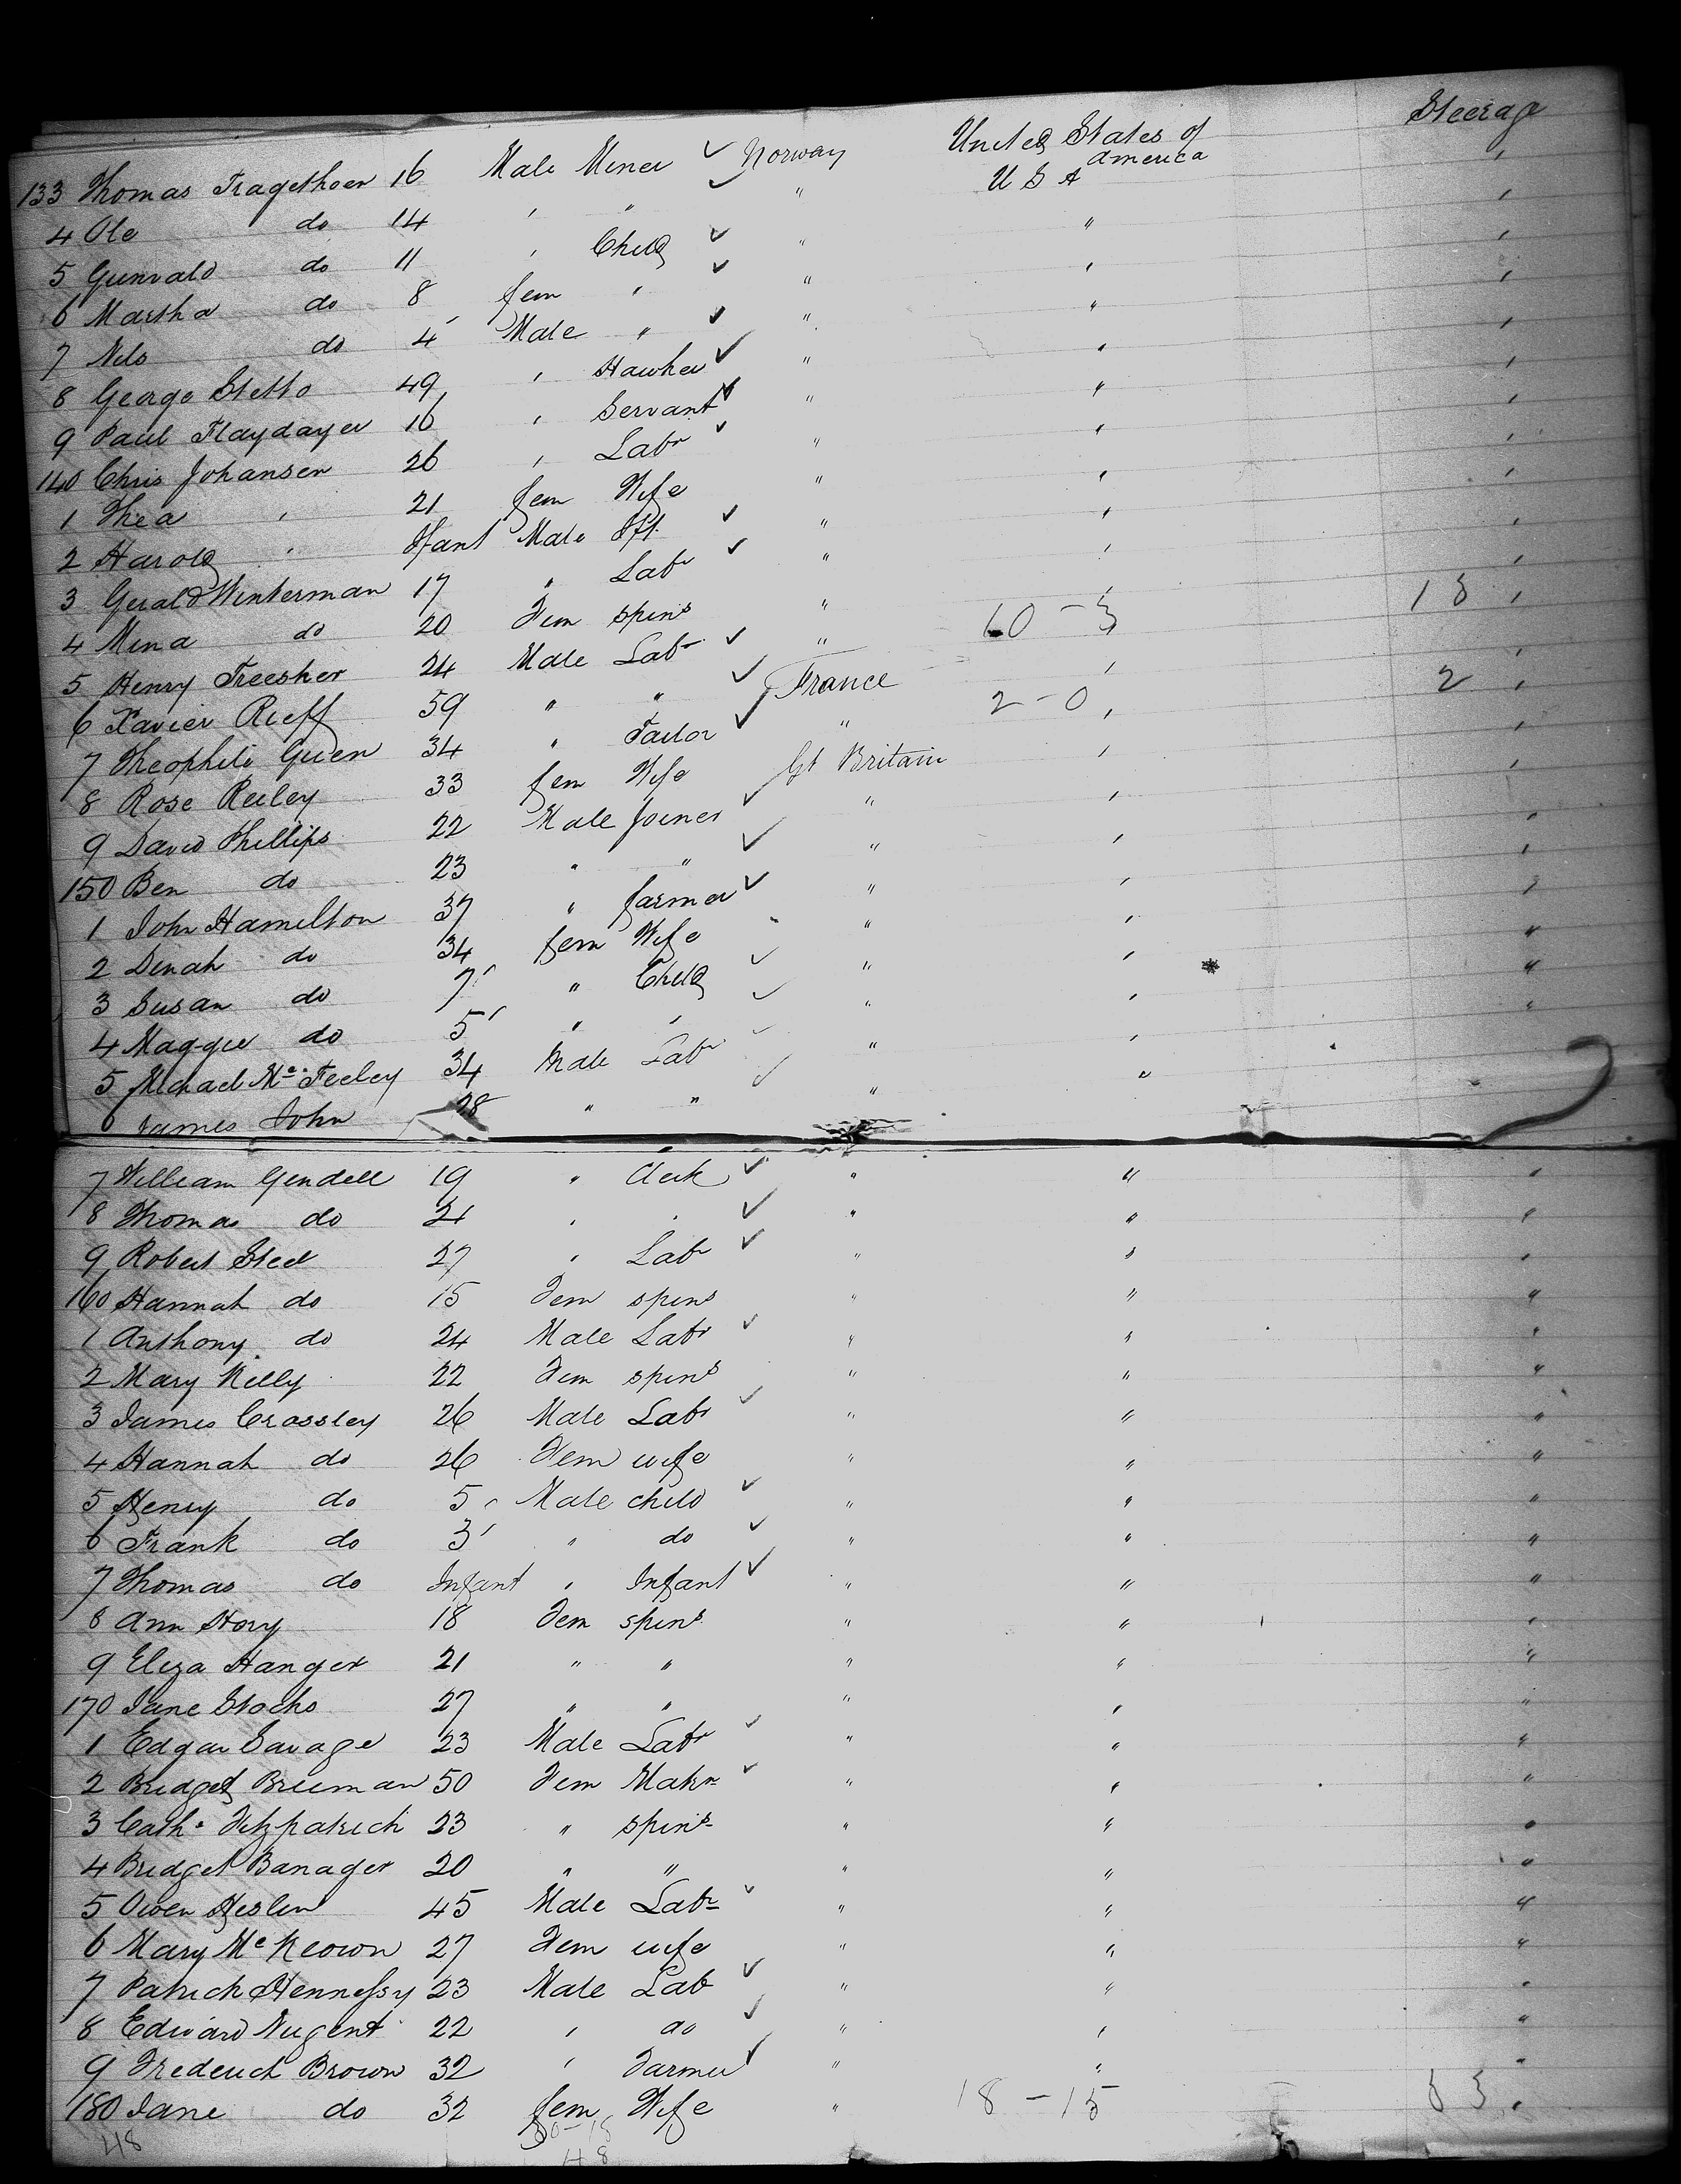 Steerage
133 Thomas Tragethoen 16 Male Miner ✓ Norway United States of America
4 Ole do 14 ' " ✓ " U S A '
5 Gunvald do 11 ' Child ✓ " " '
6 Martha do 8 fem ' ✓ " ' '
7 Nils do 4 Male " ✓ " " '
8 George Stetto 49 ' Hawker ✓ " " '
9 Paul 16 ' Servant ✓ " " '
140 Chris Johansen 26 ' Labr ✓ " ' '
1 Thea ' 21 fem Wife " ' '
2 Harold ' Ifant Male Ift ✓ " ' '
3 Gerald Winterman 17 " Labr ✓ " ' '
4 Mina do 20 Fem spins " 10 - 3 13 '
5 Henry Treesher 24 Male Labr ✓ " ' '
6 Xavier Rieff 59 " " ✓ France ' 2 '
7 Theophile Guen 34 " Tailor ✓ " 2 - 0 ' '
8 Rose Reiley 33 fem Wife Gt Britain ' '
9 David Phillips 22 Male Joiner ✓ " ' '
150 Ben do 23 " " ✓ " ' '
1 John Hamilton 37 " farmer ✓ " ' '
2 Dinah do 34 fem Wife " ' "
3 Susan do 7 " Child ✓ " ' "
4 Maggie do 5 " ' ✓ " ' "
5 Michael Mc Feeley 34 Male Labr ✓ " '
6 James John 28 " " ✓ " "
7 William Gendell 19 " Clerk ✓ " " '
8 Thomas do 21 ' ' ✓ " " '
9 Robert Steel 27 ' Labr ✓ " " '
160 Hannah do 15 Fem spins " " "
1 Anthony do 24 Male Labr ✓ " " "
2 Mary Kelly 22 Fem spins " " "
3 James Crossley 26 Male Labr ✓ " " "
4 Hannah do 26 Fem wife " " "
5 Henry do 5 Male child ✓ " " "
6 Frank do 3 " do ✓ " " "
7 Thomas do Infant ' Infant ✓ " " "
8 Ann Story 18 Fem spins " " '
9 Eliza Hanger 21 " " " " "
170 Jane Stocks 27 " " " ' "
1 Edgar Savage 23 Male Labr ✓ " " "
2 Bridget Breeman 50 Fem Matrn ✓ " ' "
3 Cath. Fitzpatrick 23 " spins " " "
4 Bridget Banager 20 " " " " "
5 Owen Heslin 45 Male Labr ✓ " " "
6 Mary Mc Keown 27 Fem wife " " "
7 Patrick Hennessy 23 Male Lab ✓ " " "
8 Edward Nugent 22 ' do ✓ " ' "
9 Frederick Brown 32 ' Farmer ✓ " " "
180 Jane do 32 fem Wife " 18 - 15 33 '
48 30-18
48